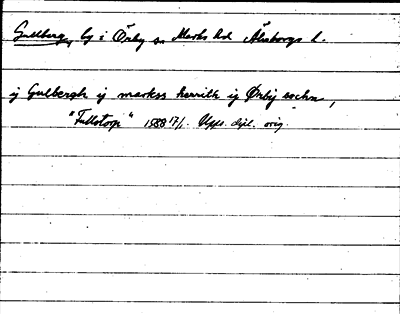 Gullberg, by i Örby sn Marks hd Älvsborgs l.
ij Gulbergh ij markss herritt ij Örbij sochn,
"Fullstorp" 1588 17/1. Upps. dipl. orig